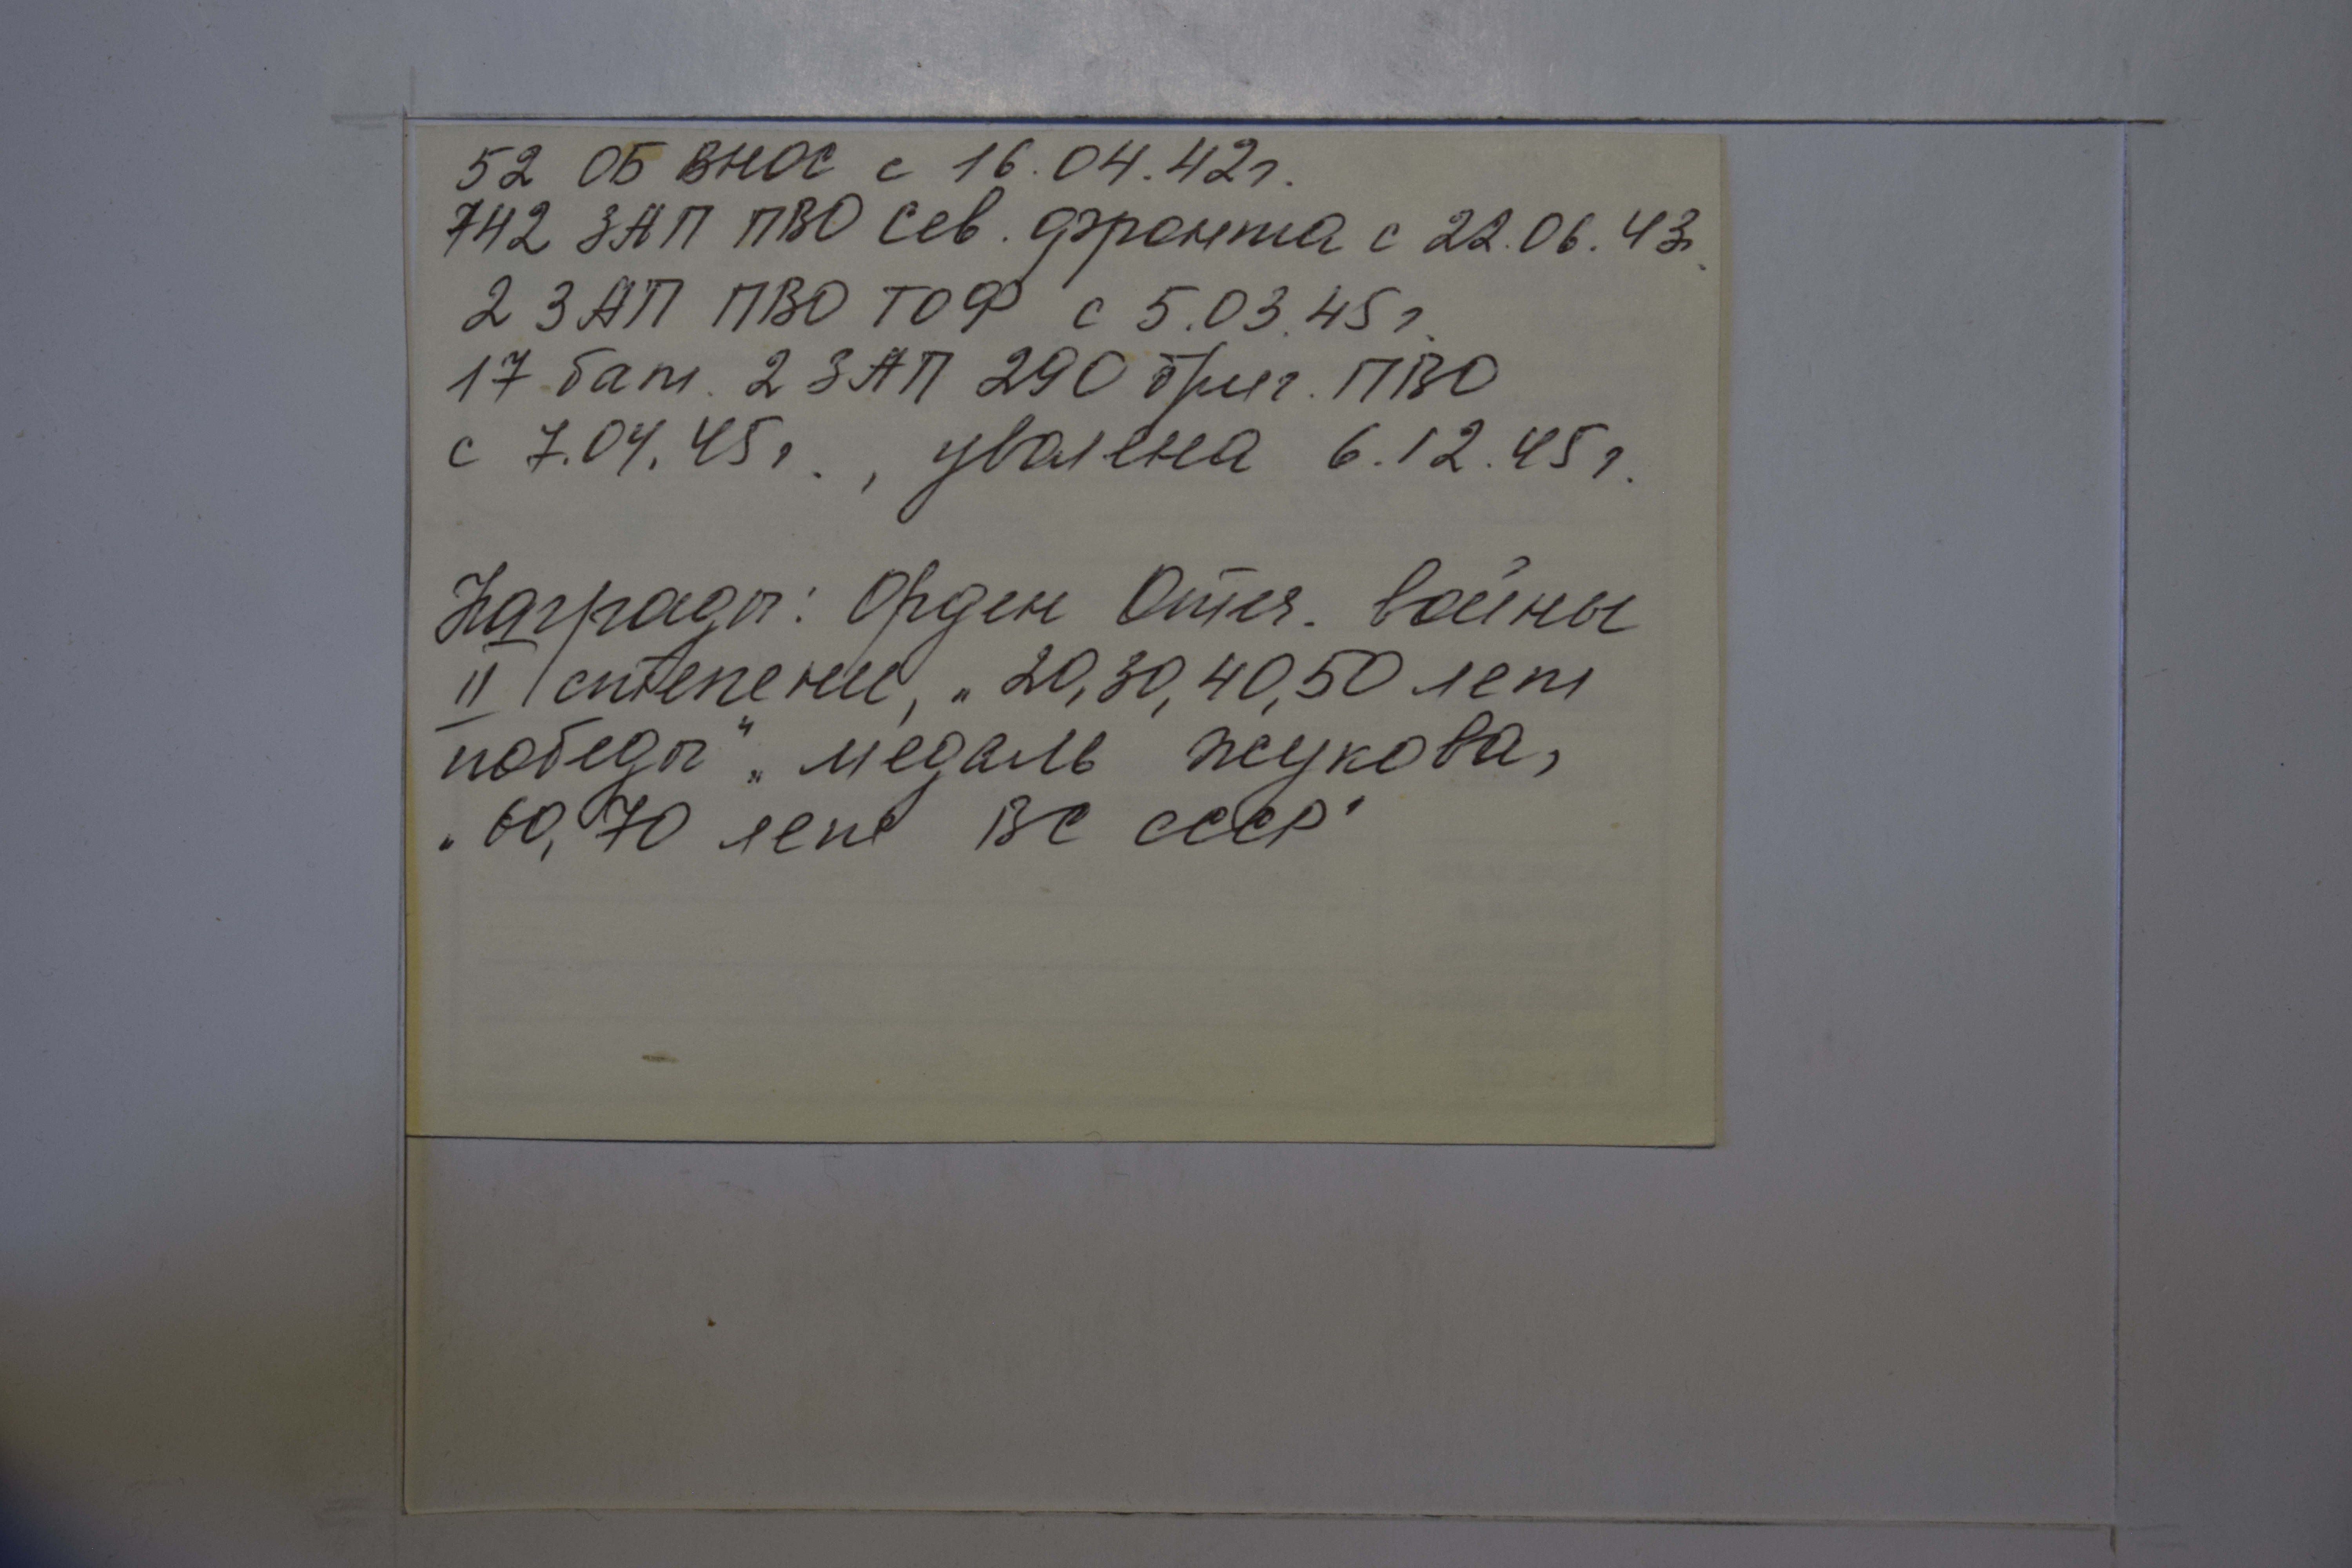 52 ОБ ВНОС с 16.04.42г.
742 ЗАП ПВО Сев. фронта с 22.06.43г.
2 ЗАП ПВО ТОФ с 5.03.45г.
17 бат. 2 ЗАП 290 бриг. ПВО
с 7.04.45г., уволена 6.12.45г.
Награды: Орден Отеч. войны
II степени, „20,30,40,50 лет
победы", медаль Жукова,
„60, 70 лет ВС СССР"